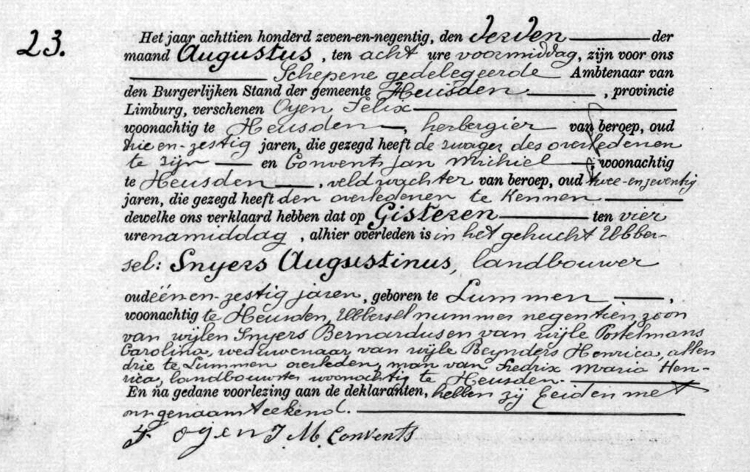 23. Het jaar achttien honderd zeven-en-negentig, den derden der
maand Augustus, ten acht ure voormiddag, zijn voor ons
Schepene gedelegeerde Ambtenaar van
den Burgerlijken Stand der gemeente Heusden, provincie
Limburg, verschenen Oyen Felix
woonachtig te Heusden, herbergier van beroep, oud
drie en-zestig jaren, die gezegd heeft de zwager des overledenen
te zijn en Convents Jan Michiel, woonachtig
te Heusden, veldwachter van beroep, oud twee-en-zeventig
jaren, die gezegd heeft den overledenen te kennen
dewelke ons verklaard hebben dat op Gisteren ten vier
ure namiddag, alhier overleden is in het gehucht Ubber-
sel: Snyers Augustinus, landbouwer
oud één en-zestig jaren, geboren te Lummen,
woonachtig te Heusden, Ubbersel nummer negentien, zoon
van wijlen Snyers Bernardus en van wijle Postelmans
Carolina, weduwenaar van wijle Reynders Henrica, allen
drie te Lummen overleden, man van Fredrix Maria Hen-
rica, landbouwster woonachtig te Heusden.
En na gedane voorlezing aan de deklaranten, hebben zij beiden met
ons genaamteekend.
F oyen J. M. Convents